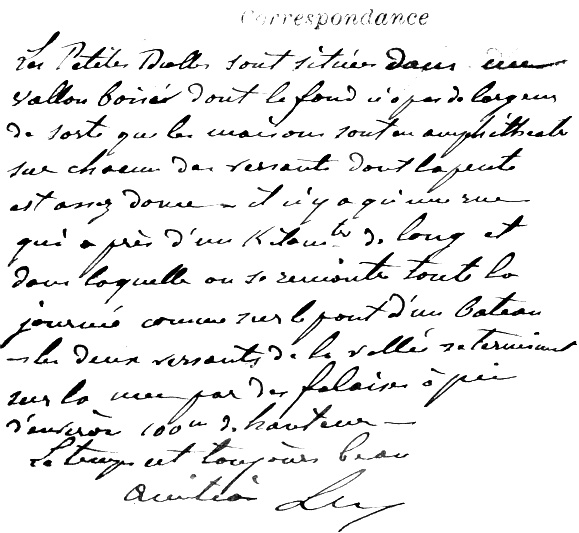 Correspondance
Les Petites Dalles sont situées dans un
vallon boisé dont le fond n'a pas de largeur
de sorte que les maisons sont en amphithéatre
sur chacun des versants dont la pente
est assez douce – il n'y a qu'une rue
qui a près d'un Kilomtre de long et
dans laquelle on se rencontre toute la
journée comme sur le pont d'un bateau
– les deux versants de la vallée se terminent
sur la mer par des falaises à pic
d'environ 100m de hauteur –
Le temps est toujours beau